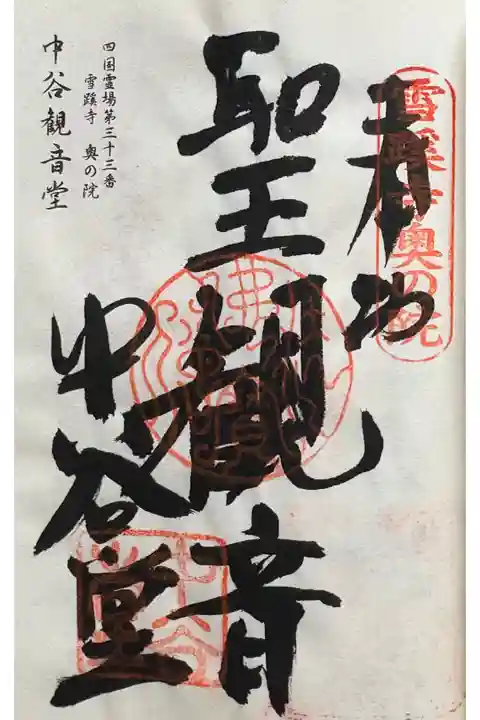 奉納
雪蹊寺奥の院
聖観音
中谷堂
四国霊場第三十三番
雪蹊寺 奥の院
中谷観音堂